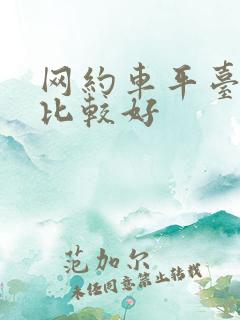 网約車平臺
比較好
范加尔
未经同意禁止转载